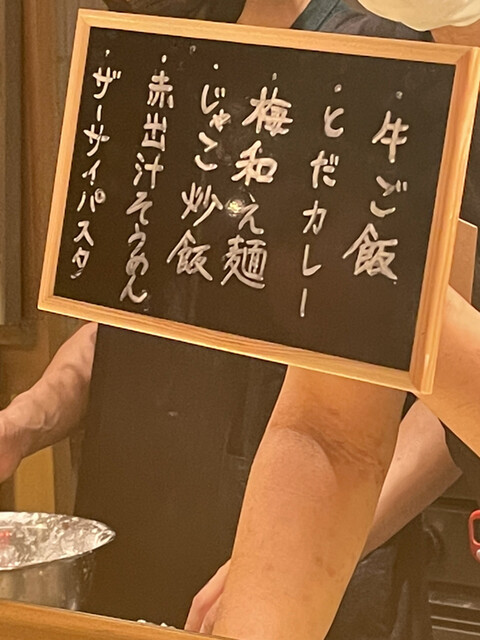 ・牛ご飯
・とだカレー
・梅和え麺
・じゃこ炒飯
・赤出汁そうめん
・ザーサイパスタ